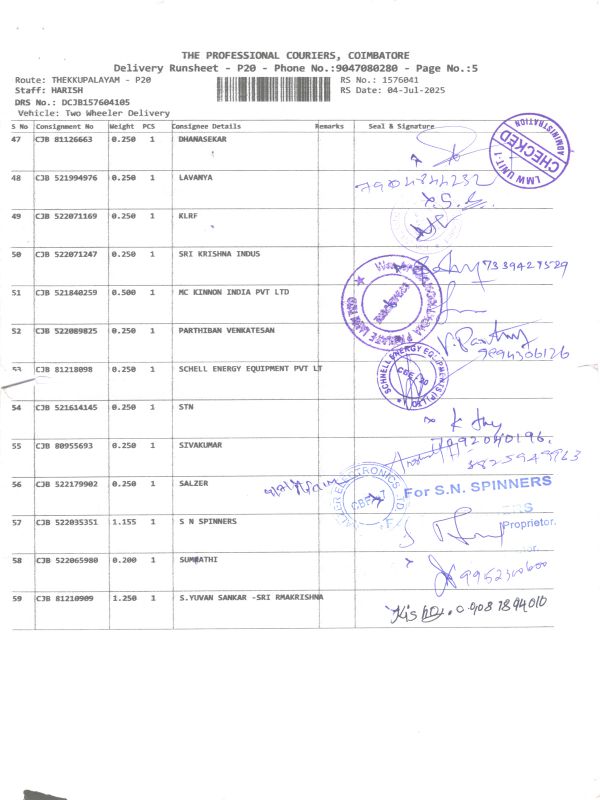 THE PROFESSIONAL COURIERS, COIMBATORE
Delivery Runsheet - P20 - Phone No.:9047080280 - Page No.:5
Route: THEKKUPALAYAM - P20 RS No.: 1576041
Staff: HARISH RS Date: 04-Jul-2025
DRS No.: DCJB157604105
Vehicle: Two Wheeler Delivery
S No Consignment No Weight PCS Consignee Details Remarks Seal & Signature
47 CJB 81126663 0.250 1 DHANASEKAR
LMW UNIT-1 CHECKED ADMINISTRATION
48 CJB 521994976 0.250 1 LAVANYA
49 CJB 522071169 0.250 1 KLRF
50 CJB 522071247 0.250 1 SRI KRISHNA INDUS 7339427529
51 CJB 521840259 0.500 1 MC KINNON INDIA PVT LTD
52 CJB 522089825 0.250 1 PARTHIBAN VENKATESAN
9894306126
53 CJB 81218098 0.250 1 SCHELL ENERGY EQUIPMENT PVT LT
SCHNELL ENERGY EQUIPMENTS (P) LTD CBE-20
54 CJB 521614145 0.250 1 STN
55 CJB 80955693 0.250 1 SIVAKUMAR
56 CJB 522179902 0.250 1 SALZER
For S.N. SPINNERS
57 CJB 522035351 1.155 1 S N SPINNERS
Proprietor.
58 CJB 522065980 0.200 1 SUMPATHI
9952300600
59 CJB 81210909 1.250 1 S.YUVAN SANKAR -SRI RMAKRISHNA